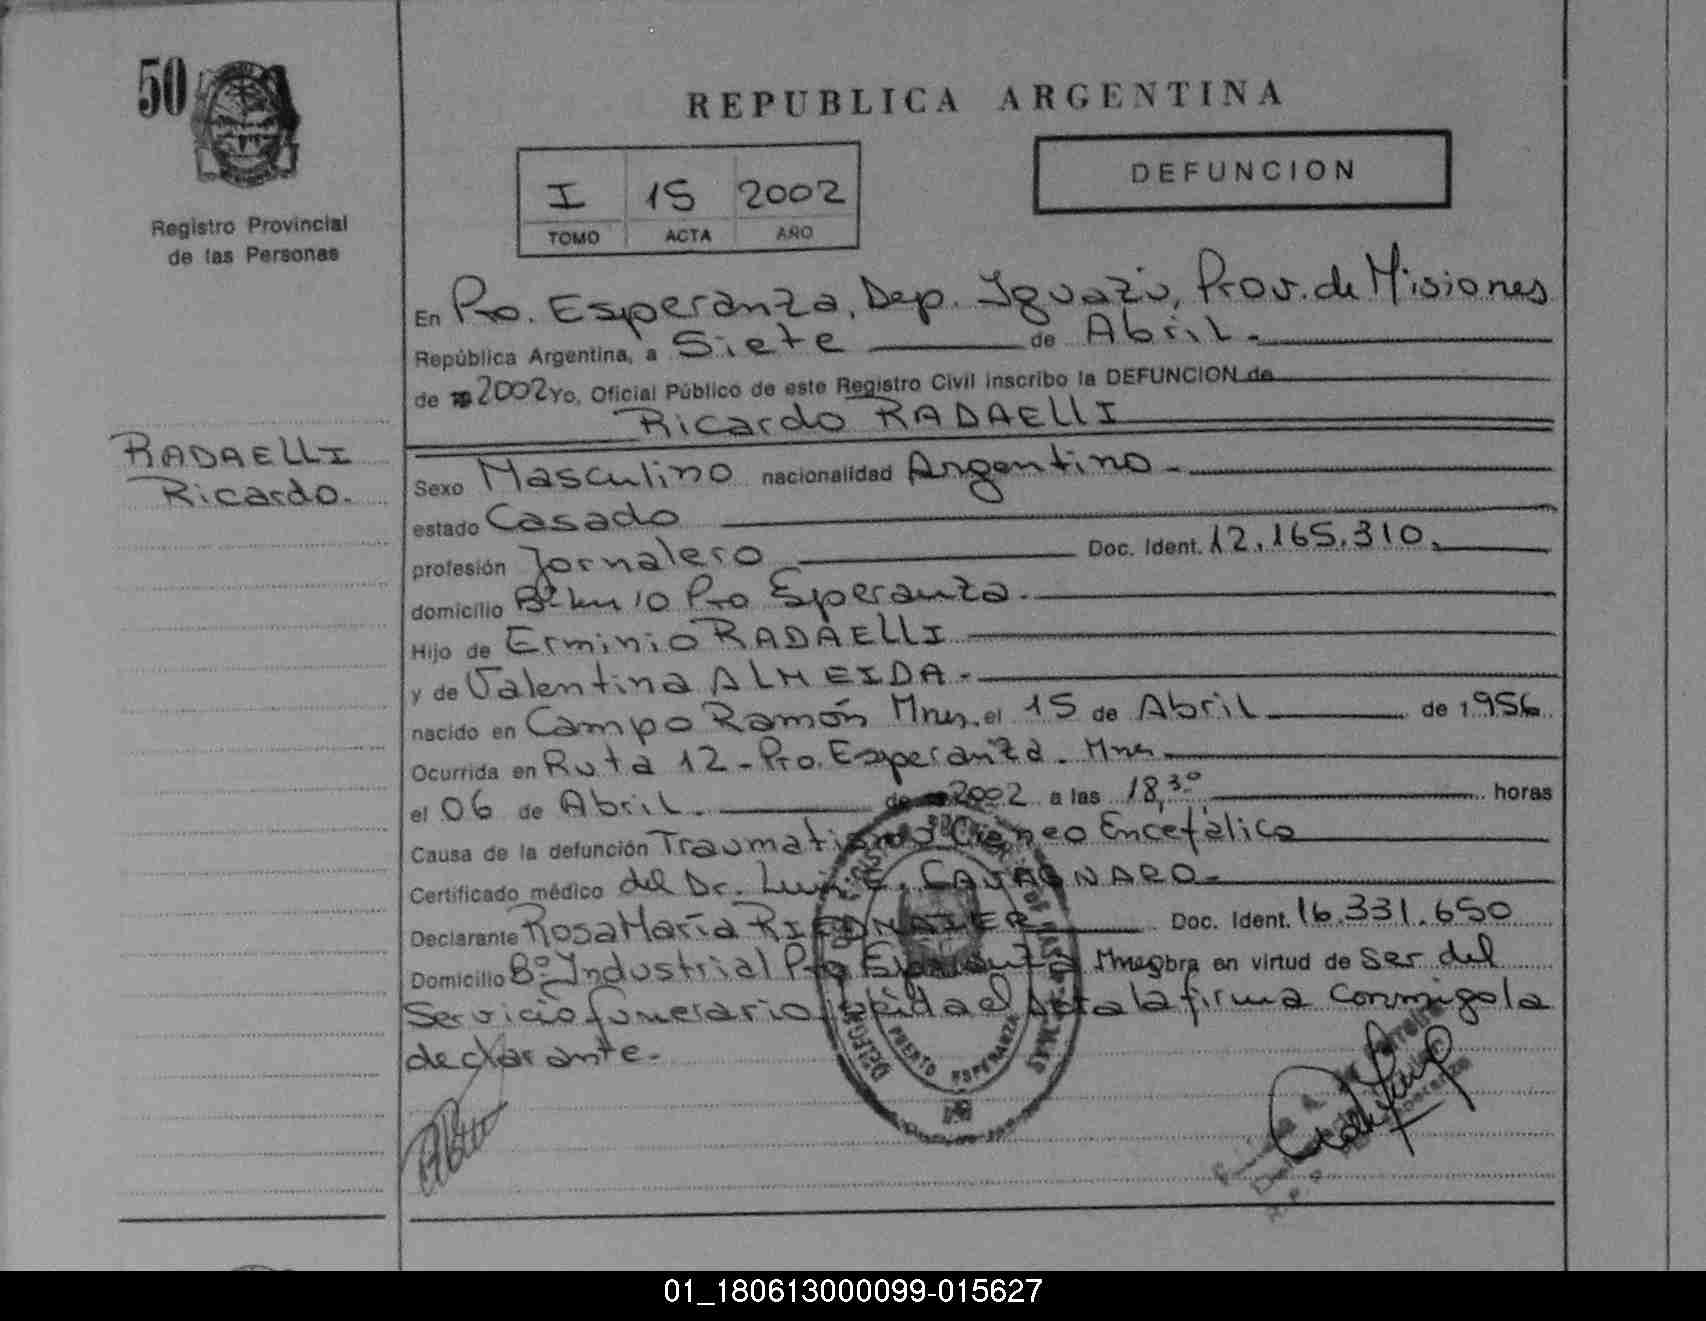 50
Registro Provincial
de las Personas
REPUBLICA ARGENTINA
I 15 2002
TOMO ACTA AÑO
DEFUNCION
En Pto. Esperanza, Dep. Iguazú, Prov. de Misiones
República Argentina, a Siete de Abril.
de 2002 Yo, Oficial Público de este Registro Civil inscribo la DEFUNCION de
Ricardo RADAELLI
RADAELLI
Ricardo.
Sexo Masculino nacionalidad Argentino
estado Casado
profesión Jornalero Doc. Ident. 12.165.310.
domicilio Bº km 10 Pto Esperanza.
Hijo de Erminio RADAELLI
y de Valentina ALMEIDA.
nacido en Campo Ramón Mnes. el 15 de Abril de 1956
Ocurrida en Ruta 12 - Pto. Esperanza. Mnes
el 06 de Abril. de 2002 a las 18,30 horas
Causa de la defunción Traumatismo Cráneo Encefálico
Certificado médico del Dr. Luis E. CAVAGNARO.
Declarante Rosa María Doc. Ident. 16.331.650
Domicilio Bº Industrial Pto Esperanza Mnes obra en virtud de Ser del
Servicio funerario leída el Acta la firma conmigo la
declarante.
PUERTO ESPERANZA
01_180613000099-015627